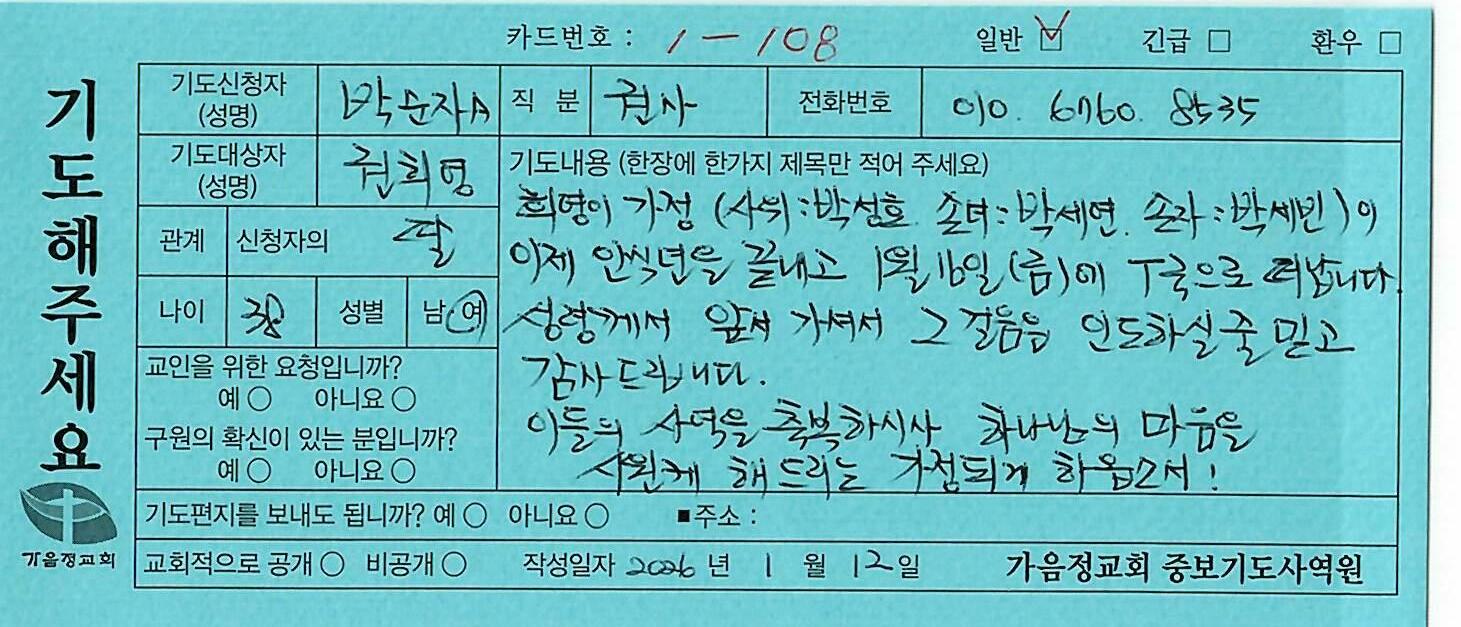 카드번호 : 1-108 일반 ☑ 긴급 □ 환우 □
기도해주세요
기도신청자 (성명) 박순자A 직분 권사 전화번호 010. 6760. 8535
기도대상자 (성명) 권희영
관계 신청자의 딸
나이 성별 남 여
교인을 위한 요청입니까?
예 ○ 아니요 ○
구원의 확신이 있는 분입니까?
예 ○ 아니요 ○
기도내용 (한장에 한가지 제목만 적어 주세요)
희영이 가정 (사위:박성호 손녀:박세연 손자:박세빈)이
이제 안식년을 끝내고 1월 16일(금)에 T국으로 떠납니다.
성령께서 앞서 가셔서 그 걸음을 인도하실줄 믿고
감사드립니다.
이들의 사역을 축복하시사 하나님의 마음을
시원케 해드리는 가정되게 하옵소서!
기도편지를 보내도 됩니까? 예 ○ 아니요 ○ ■주소 :
교회적으로 공개 ○ 비공개 ○ 작성일자 2026 년 1 월 12 일 가음정교회 중보기도사역원
가음정교회